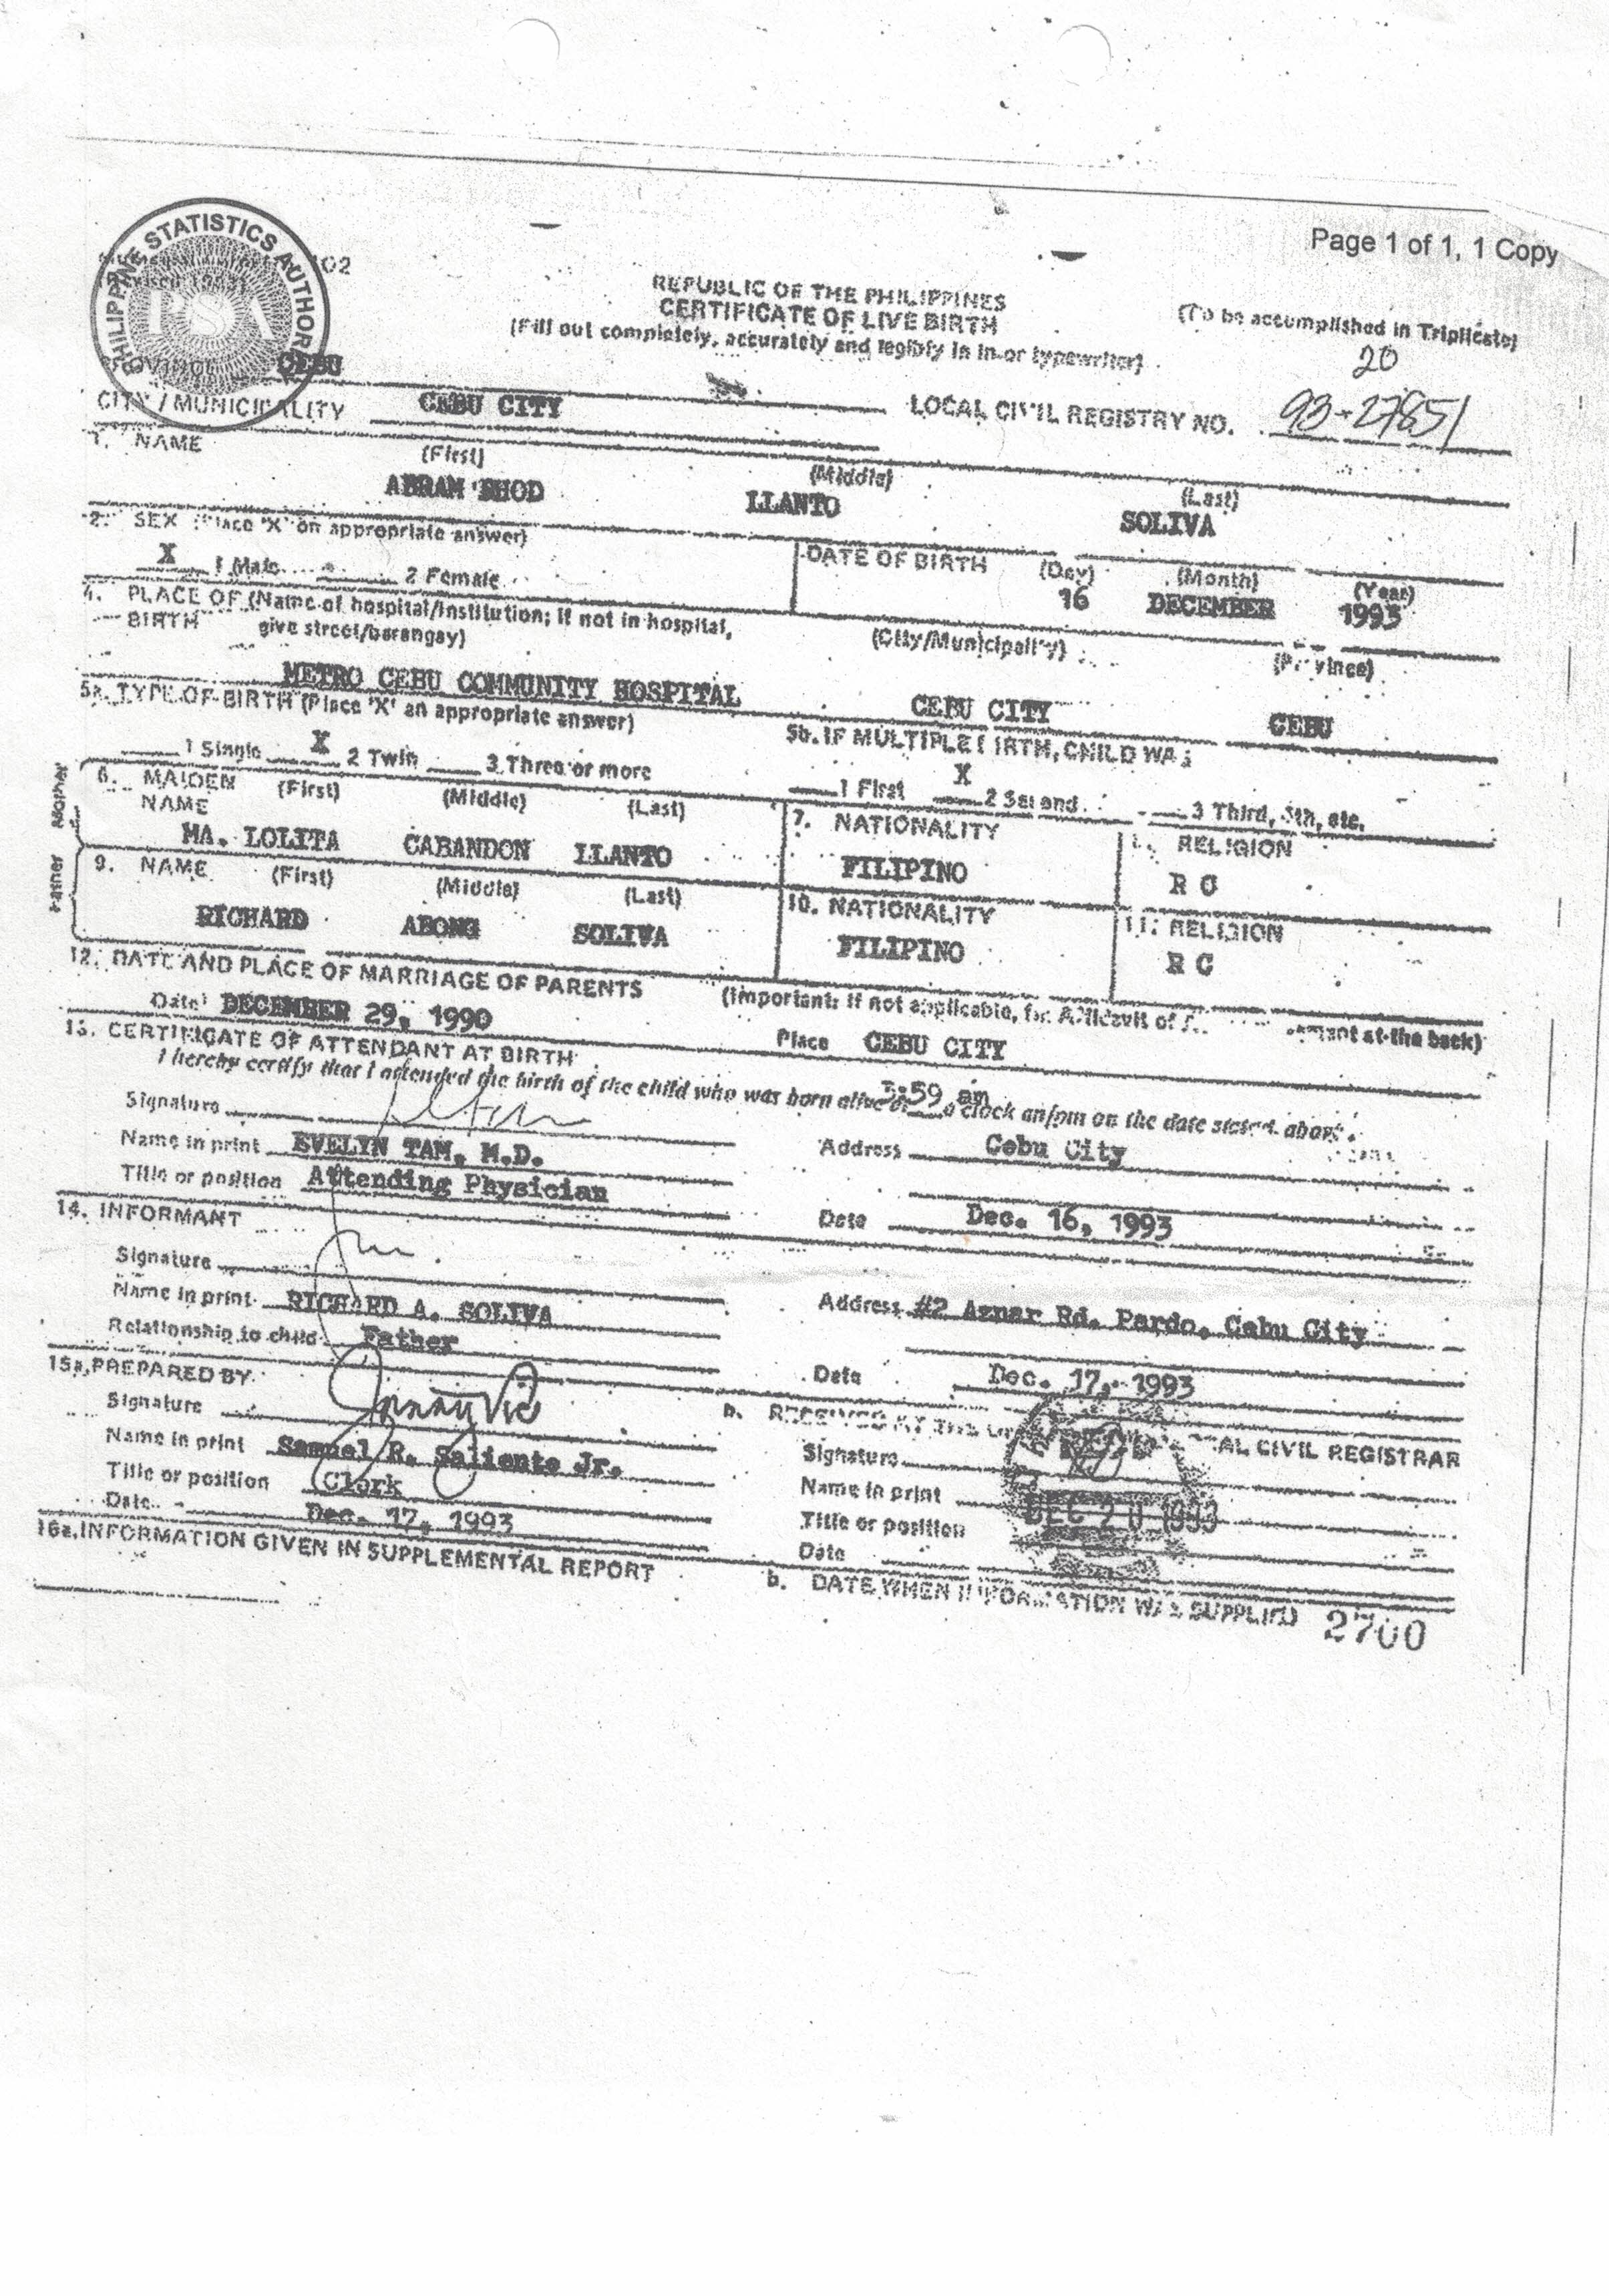 Page 1 of 1, 1 Copy
PHILIPPINE STATISTICS AUTHOR
PSA
102
REPUBLIC OF THE PHILIPPINES
CERTIFICATE OF LIVE BIRTH
(Fill out completely, accurately and legibly in in or typewriter)
(To be accomplished in Triplicate)
20
CEBU
CITY / MUNICIPALITY CEBU CITY
LOCAL CIVIL REGISTRY NO. 93-27851
1. NAME (First) (Middle) (Last)
LLANTO SOLIVA
2. SEX (Place 'X' on appropriate answer)
X 1 Male 2 Female
DATE OF BIRTH (Day) (Month) (Year)
16 DECEMBER 1993
4. PLACE OF BIRTH (Name of hospital/Institution; if not in hospital, give street/barangay)
(City/Municipality) (Province)
METRO CEBU COMMUNITY HOSPITAL CEBU CITY CEBU
5a. TYPE OF BIRTH (Place 'X' an appropriate answer)
1 Single X 2 Twin 3 Three or more
5b. IF MULTIPLE BIRTH, CHILD WAS
1 First X 2 Second 3 Third, 5th, etc.
Mother
6. MAIDEN NAME (First) (Middle) (Last)
MA. LOLITA CABANDON LLANTO
7. NATIONALITY
FILIPINO
RELIGION
R C
Father
9. NAME (First) (Middle) (Last)
RICHARD ABONG SOLIVA
10. NATIONALITY
FILIPINO
11. RELIGION
R C
12. DATE AND PLACE OF MARRIAGE OF PARENTS
(Important: If not applicable, Affidavit of at the back)
Date: DECEMBER 29, 1990
Place CEBU CITY
13. CERTIFICATE OF ATTENDANT AT BIRTH
I hereby certify that I attended the birth of the child who was born alive at :59 am o'clock am/pm on the date stated above.
Signature
Name in print EVELYN TAM, M.D.
Title or position Attending Physician
Address Cebu City
Date Dec. 16, 1993
14. INFORMANT
Signature
Name in print RICHARD A. SOLIVA
Relationship to child Father
Address #2 Aznar Rd. Pardo, Cebu City
Date Dec. 17, 1993
15a. PREPARED BY
Signature
Name in print Samuel R. Saliente Jr.
Title or position Clerk
Date Dec. 17, 1993
b. RECEIVED AT THE CIVIL REGISTRAR
Signature
Name in print
Title or position
Date
DEC 20 1993
16a. INFORMATION GIVEN IN SUPPLEMENTAL REPORT
b. DATE WHEN INFORMATION WAS SUPPLIED
2700